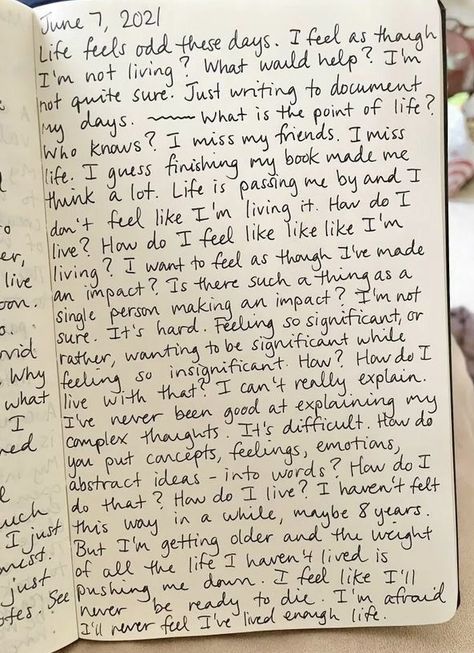 June 7, 2021
Life feels odd these days. I feel as though
I'm not living? What would help? I'm
not quite sure. Just writing to document
my days. What is the point of life?
Who knows? I miss my friends. I miss
life. I guess finishing my book made me
think a lot. Life is passing me by and I
don't feel like I'm living it. How do I
live? How do I feel like like like I'm
living? I want to feel as though I've made
an impact? Is there such a thing as a
single person making an impact? I'm not
sure. It's hard. Feeling so significant, or
rather, wanting to be significant while
feeling so insignificant. How? How do I
live with that? I can't really explain.
I've never been good at explaining my
complex thoughts. It's difficult. How do
you put concepts, feelings, emotions,
abstract ideas - into words? How do I
do that? How do I live? I haven't felt
this way in a while, maybe 8 years.
But I'm getting older and the weight
of all the life I haven't lived is
pushing me down. I feel like I'll
never be ready to die. I'm afraid
I'll never feel I've lived enough life.
live
Why
what
I
I just
just
See